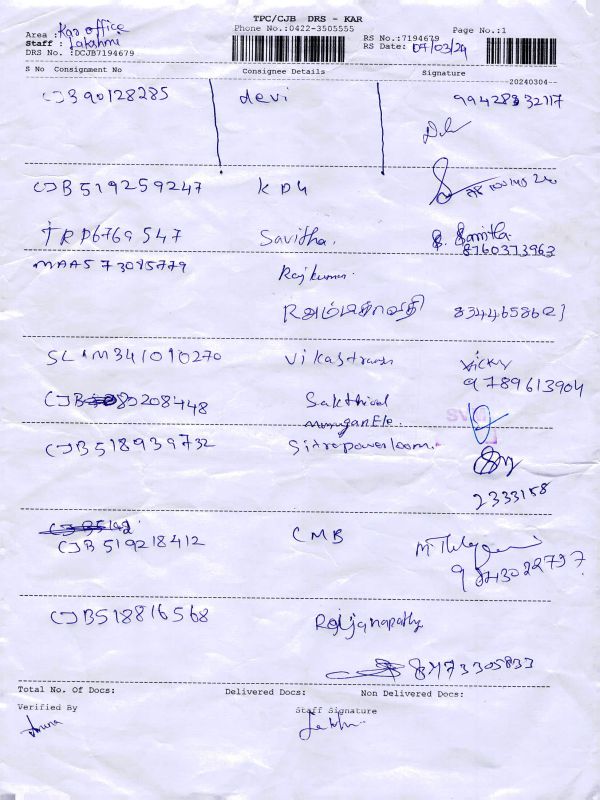 TPC/CJB DRS - KAR
Phone No.:0422-3505555
Page No.:1
Area : Kar office
Staff : Lakshmi
DRS No. :DCJB7194679
RS No.:7194679
RS Date: 04/03/24
S No Consignment No Consignee Details Signature
20240304
CJB90128285 devi
KPM
CJB519259247
TRP6769547 Savitha.
8760373963
MAA573085779 Rajkumar
8344658621
SLM341090270 Vikastrands Vicky
9789613904
Sakthivel
murugan Ele.
CJB518939732 Sitrapowerloom.
2333158
CJB519218412 CMB
CJB518816568
8973305833
Total No. Of Docs: Delivered Docs: Non Delivered Docs:
Verified By Staff Signature